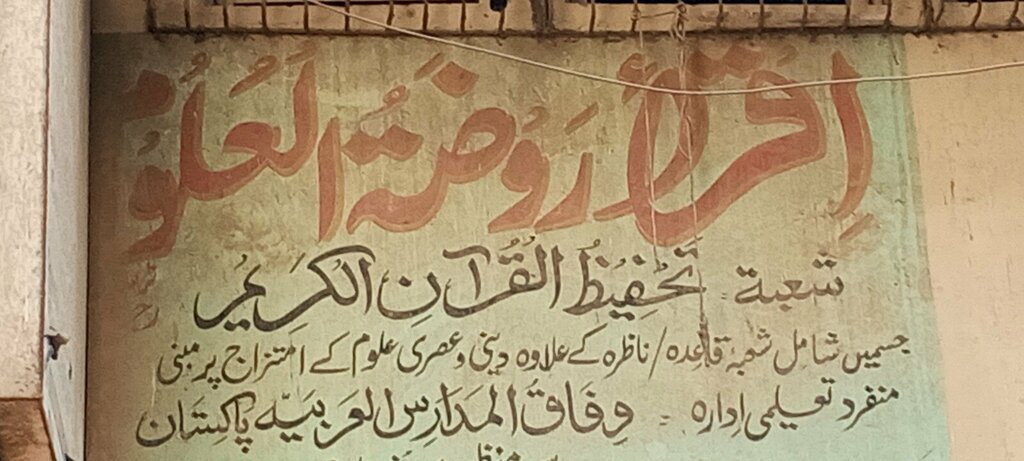 اِقْرَأْ رَوْضَۃُ الْعُلُوْمُ
شعبۃ تَحْفِیْظُ الْقُرْآنِ الْکَرِیْمُ
جسمیں شامل شعبۂ قاعدہ/ناظرہ کے علاوہ دینی و عصری علوم کے امتزاج پر مبنی
منفرد تعلیمی اِدارہ = وِفَاقُ المَدَارِس العَرَبیَّہ پاکِستَان